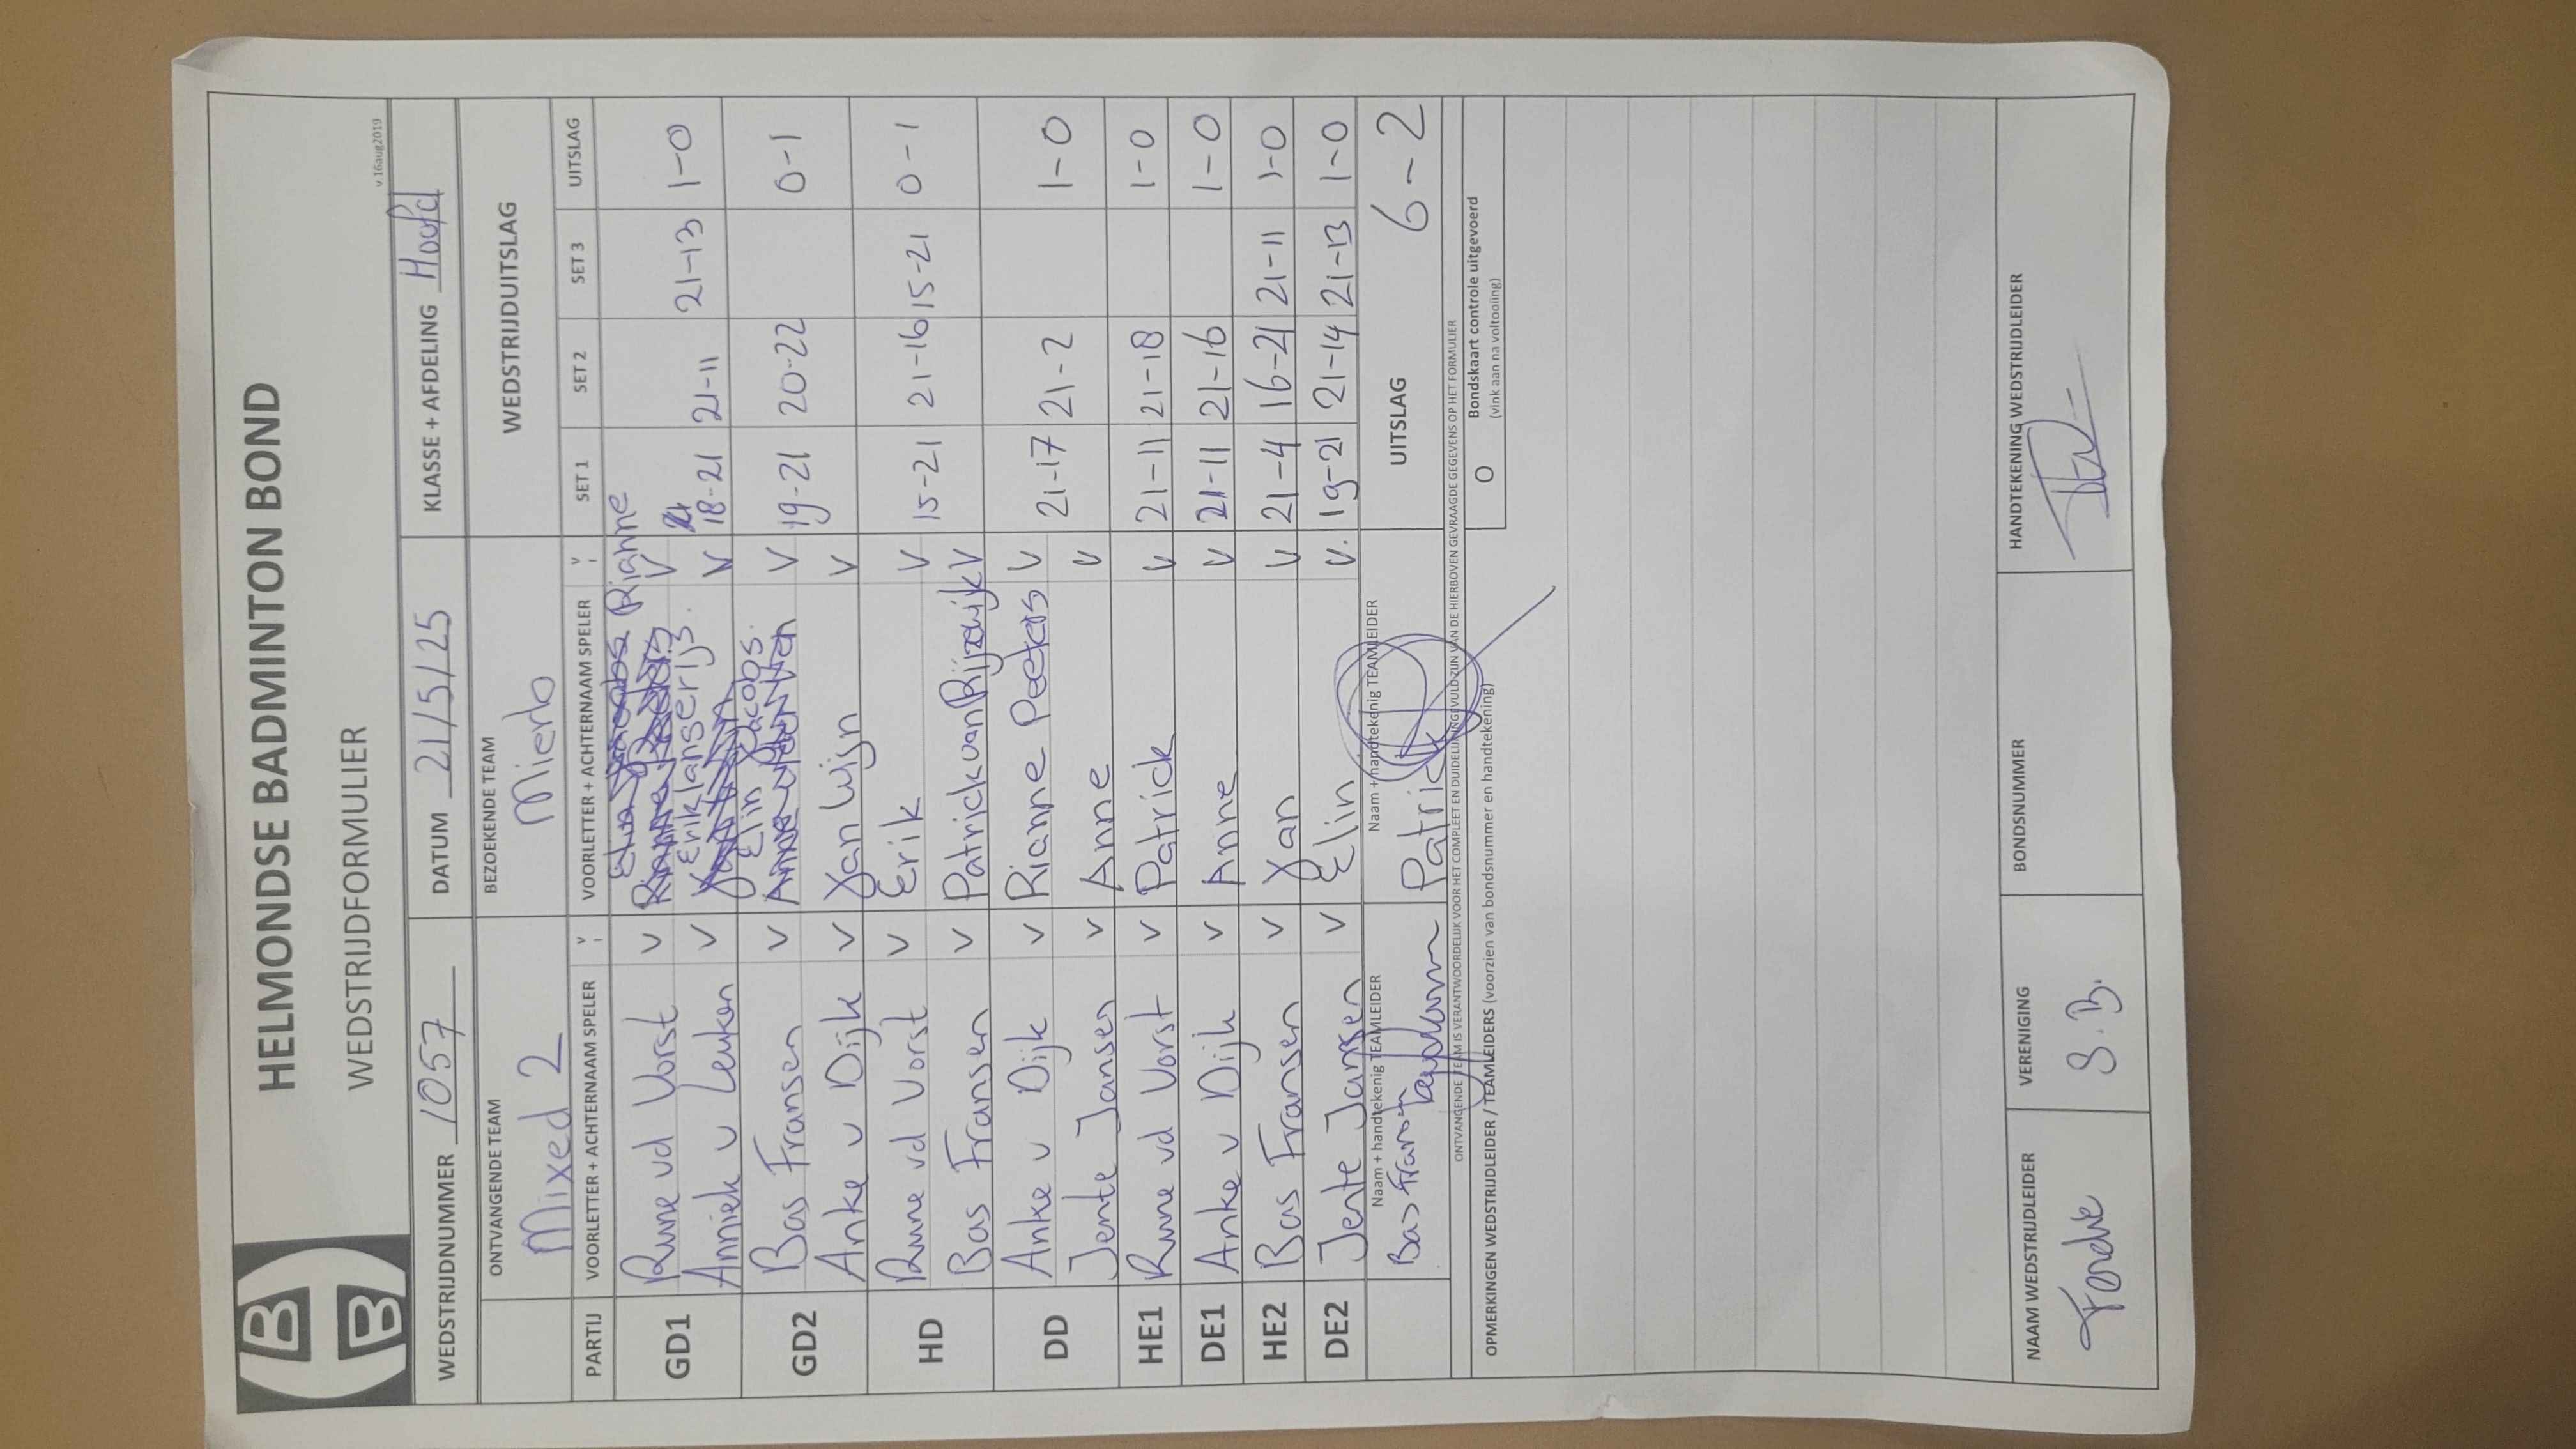 HELMONDSE BADMINTON BOND
WEDSTRIJDFORMULIER
v.16aug2019
WEDSTRIJDNUMMER 1057 DATUM 21/5/25 KLASSE + AFDELING Hoofd
ONTVANGENDE TEAM BEZOEKENDE TEAM WEDSTRIJDUITSLAG
Mixed 2 Mierlo
PARTIJ VOORLETTER + ACHTERNAAM SPELER V VOORLETTER + ACHTERNAAM SPELER V SET 1 SET 2 SET 3 UITSLAG
GD1 Rune vd Vorst V Rianne V
Anniek v Leuken V Erik lanserijs. V 18-21 21-11 21-13 1-0
GD2 Bas Fransen V Elin Jacobs. V 19-21 20-22 0-1
Anke v Dijk V Jan Wijn V
HD Rune vd Vorst V Erik V 15-21 21-16 15-21 0-1
Bas Fransen V Patrick van Rijzewijk V
DD Anke v Dijk V Rianne Peeters V 21-17 21-2 1-0
Jente Jansen V Anne V
HE1 Rune vd Vorst V Patrick V 21-11 21-18 1-0
DE1 Anke v Dijk V Anne V 21-11 21-16 1-0
HE2 Bas Fransen V Jan V 21-4 16-21 21-11 1-0
DE2 Jente Jansen V Elin V. 19-21 21-14 21-13 1-0
Naam + handtekenig TEAMLEIDER Naam + handtekenig TEAMLEIDER UITSLAG 6-2
Bas Fransen Patrick
ONTVANGENDE TEAM IS VERANTWOORDELIJK VOOR HET COMPLEET EN DUIDELIJK INGEVULD ZIJN VAN DE HIERBOVEN GEVRAAGDE GEGEVENS OP HET FORMULIER
OPMERKINGEN WEDSTRIJDLEIDER / TEAMLEIDERS (voorzien van bondsnummer en handtekening)
O Bondskaart controle uitgevoerd
(vink aan na voltooiing)
NAAM WEDSTRIJDLEIDER VERENIGING BONDSNUMMER HANDTEKENING WEDSTRIJDLEIDER
S.B.